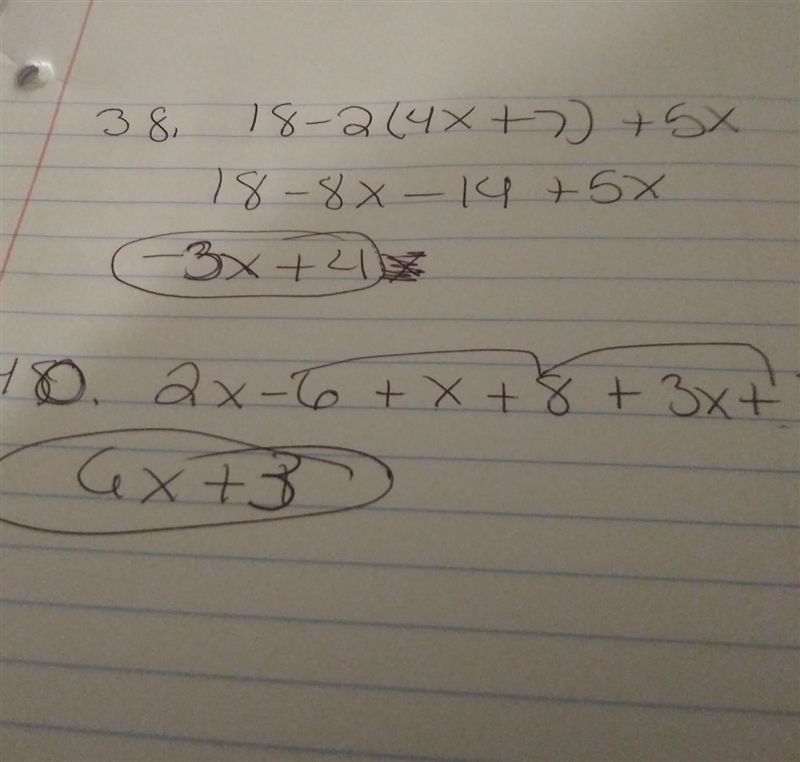 38. 18-2(4x+7) +5x
18-8x-14+5x
-3x+4
40. 2x-6+x+8+3x+
6x+3